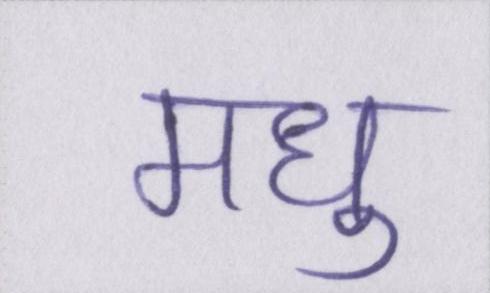 मधु